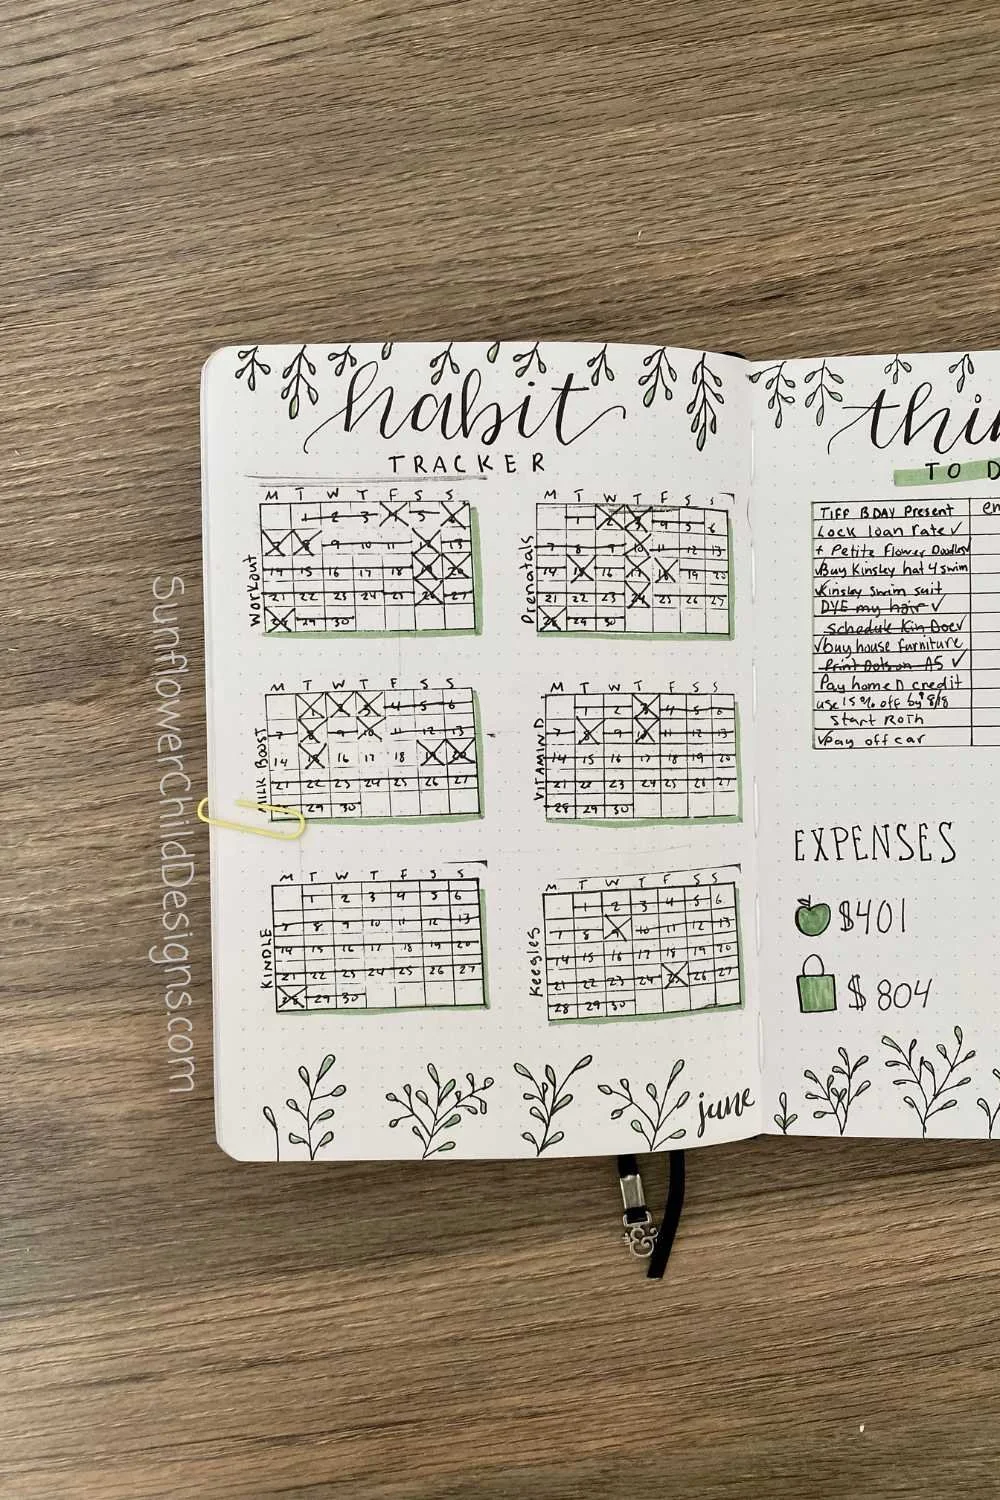 habit
TRACKER
M T W T F S S
Workout
1 2 3 4 5 6
7 8 9 10 11 12 13
14 15 16 17 18 19 20
21 22 23 24 25 26 27
28 29 30
M T W T F S S
Prenatals
1 2 3 4 5 6
7 8 9 10 11 12 13
14 15 16 17 18 19 20
21 22 23 24 25 26 27
28 29 30
M T W T F S S
MILK BOOST
1 2 3 4 5 6
7 8 9 10 11 12 13
14 15 16 17 18 19 20
21 22 23 24 25 26 27
29 30
M T W T F S S
VITAMIN D
1 2 3 4 5 6
7 8 9 10 11 12 13
14 15 16 17 18 19 20
21 22 23 24 25 26 27
28 29 30
M T W T F S S
KINDLE
1 2 3 4 5 6
7 8 9 10 11 12 13
14 15 16 17 18 19 20
21 22 23 24 25 26 27
28 29 30
M T W T F S S
Keegles
1 2 3 4 5 6
7 8 9 10 11 12 13
14 15 16 17 18 19 20
21 22 23 24 25 26 27
28 29 30
june
thin
TO D
TIFF BDAY Present
Lock loan rate ✓
+ Petite Flower Doodles
✓Buy Kinsley hat 4 swim
✓Kinsley swim suit
DYE my hair ✓
Schedule Kin Doc✓
✓buy house furniture
Print Dots on A5 ✓
Pay home D credit
use 15% off by 8/8
Start Roth
✓Pay off car
EXPENSES
$401
$804
SunflowerchildDesigns.com
&